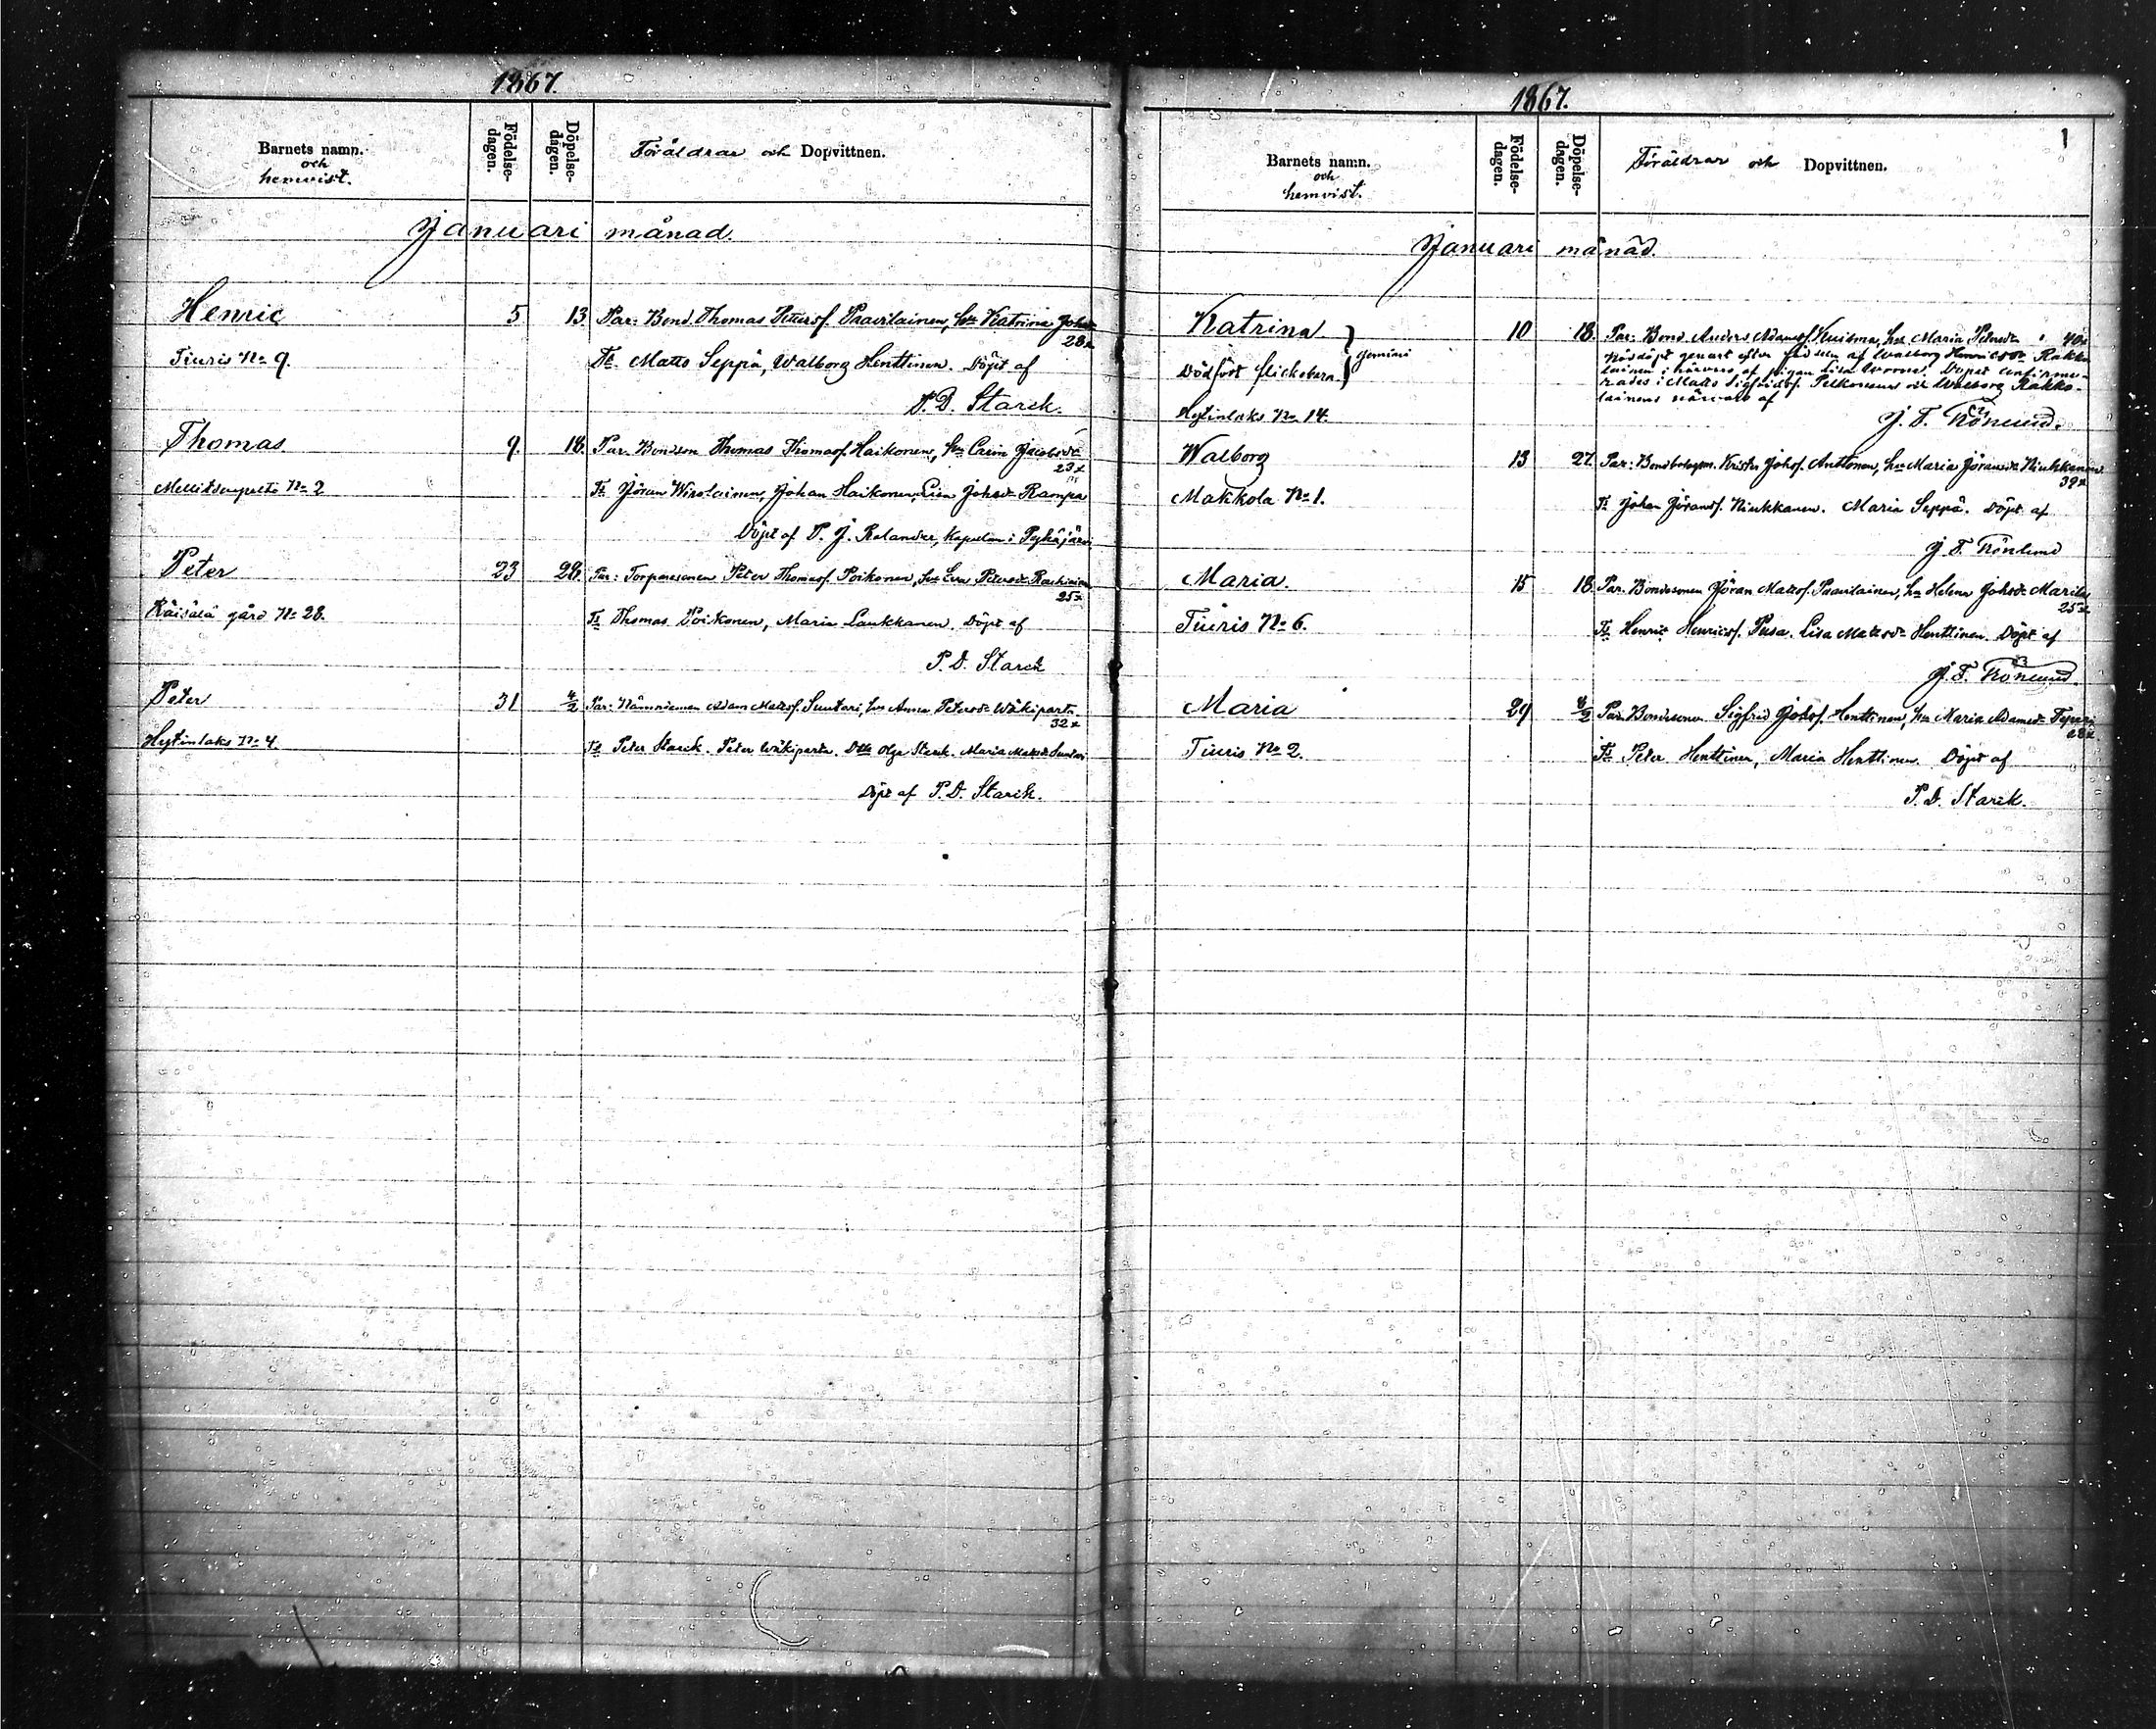 1867.
Barnets namn.
och
hemvist.
Födelse-
dagen.
Döpelse-
dagen.
Föräldrar och Dopvittnen.
Januari månad.
Henric 5 13 Par: Bond. Thomas Petersf. Paavilainen, hu Katrina Johsdr
28
Tiuris No 9. Tt. Matts Seppä, Walborg Henttinen. Döpt af
P. D. Starck.
Thomas. 9. 18. Par. Bondson Thomas Thomasf. Haikonen, hu Carin Jacobsdr
23
No 2 Tt Jöran Wirolainen, Johan Haikonen, Lisa Johsdr Rampa
Döpt af P. J. Relander, Kapellan i Pyhäjärvi
Peter 23 28. Par: Torparesonen Peter Thomasf. Poikonen, hu Eva Petersdr
25
Räisälä gård No 28. Tt Thomas Poikonen, Maria Laukkanen. Döpt af
P. D. Starck
Peter 31 4/2 Par: Nämndeman Adam Mattsf. Suutari, hu Anna Petersdr Wäkiparta
32
Hytinlaks No 4 Tt Peter Starck. Peter Wäkiparta. Olga Starck. Maria Mattsdr Suutari
Döpt af P. D. Starck.
1867.
1
Barnets namn.
och
hemvist.
Födelse-
dagen.
Döpelse-
dagen.
Föräldrar och Dopvittnen.
Januari månad.
Katrina 10 18. Par: Bond Anders Adamsf. hu Maria Petersdr 40
gemini
Nöddöpt genast efter födseln af Walborg Henricsdr Rakko-
Dödfödt flickebarn lainen i närvaro af pigan Lisa Döpet confirme-
rades i Matts Sigfridsf. Pelkonens och Walborg Rakko-
lainens närvaro af
Hytinlaks No 14. J. F. Rönlund.
Walborg 13 27. Par: Bondbolagsm. Krister Johsf. Anttonen, hu Maria Jöransdr Niukkanen
39
Makkola No 1. Tt Johan Jöransf. Niukkanen. Maria Seppä. Döpt af
J. F. Rönlund
Maria. 15 18. Par. Bondesonen Jöran Mattsf. Paavilainen, hu Helena Johsdr
25
Tiuris No 6. Tt Henric Henricsf. Pusa. Lisa Mattsdr Henttinen. Döpt af
J. F. Rönlund.
Maria 29 8/2 Par. Bondesonen Sigfrid Johsf. Henttinen, hu Maria Adamsdr
28
Tiuris No 2. Tt Peter Henttinen, Maria Henttinen. Döpt af
P. D. Starck.